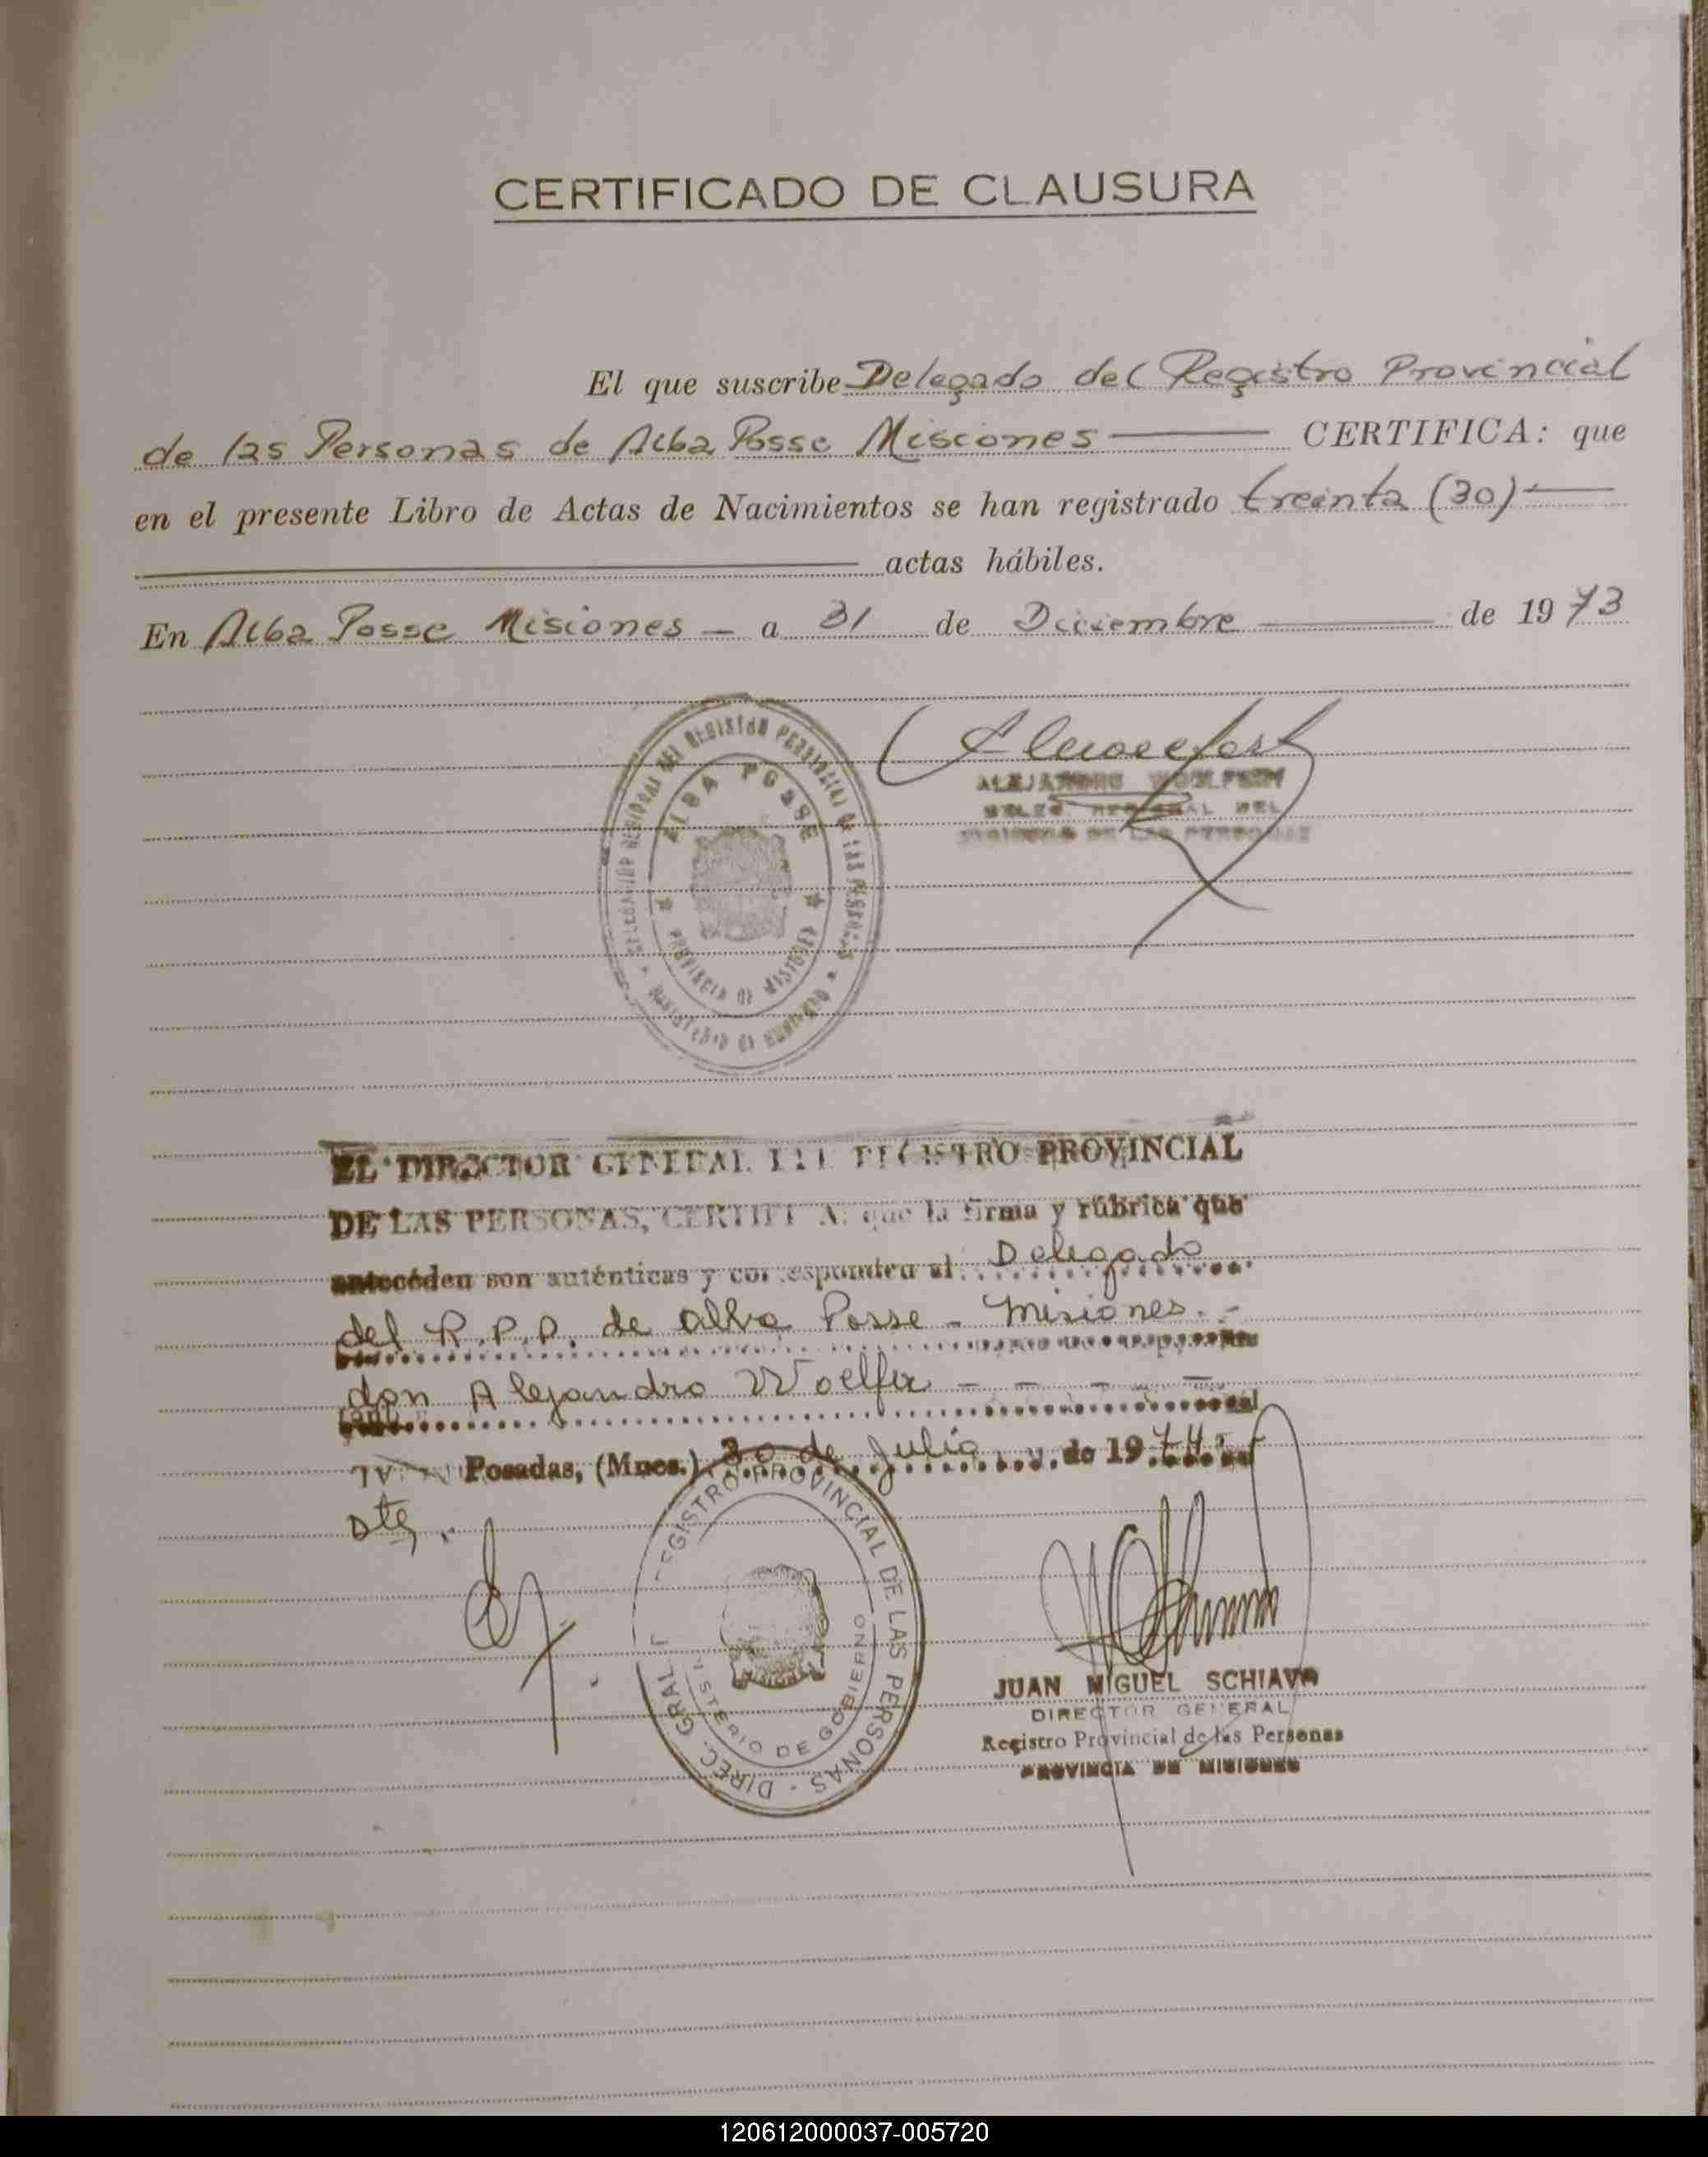 CERTIFICADO DE CLAUSURA
El que suscribe Delegado del Registro Provincial
de las Personas de Alba Posse Misiones CERTIFICA: que
en el presente Libro de Actas de Nacimientos se han registrado treinta (30)
actas hábiles.
En Alba Posse Misiones - a 31 de Diciembre de 1973
DELEGACION REGIONAL DEL REGISTRO PROVINCIAL DE LAS PERSONAS
ALBA POSSE
PROVINCIA DE MISIONES
MINISTERIO DE GOBIERNO
ALEJANDRO
REGIONAL DEL
DE LAS PERSONAS
EL DIRECTOR GENERAL DEL REGISTRO PROVINCIAL
DE LAS PERSONAS, CERTIFICA: que la firma y rúbrica que
anteceden son auténticas y corresponden al Delegado
del R.P.P. de Alba Posse - Misiones.-
don Alejandro Woelfer - - - -
Posadas, (Mnes.) 30 de Julio de 1974
REGISTRO PROVINCIAL DE LAS PERSONAS - DIREC. GRAL.
MINISTERIO DE GOBIERNO
JUAN MIGUEL SCHIAVA
DIRECTOR GENERAL
Registro Provincial de las Personas
PROVINCIA DE MISIONES
120612000037-005720